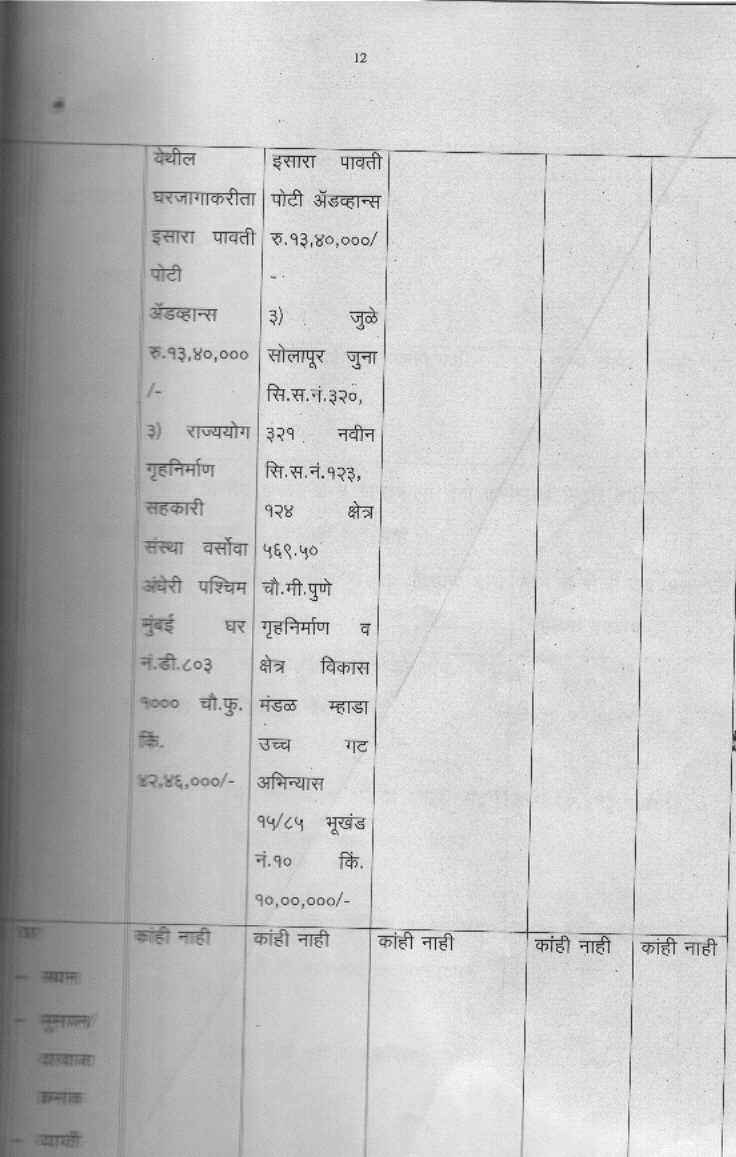 12
येथील
घरजागाकरीता
इसारा पावती
पोटी
ॲडव्हान्स
रु.१३,४०,०००
/-
३) राज्ययोग
गृहनिर्माण
सहकारी
संस्था वर्सोवा
अंधेरी पश्चिम
मुंबई घर
नं.डी.८०३
१००० चौ.फु.
किं.
४२,४६,०००/-
इसारा पावती
पोटी ॲडव्हान्स
रु.१३,४०,०००/
-
३) जुळे
सोलापूर जुना
सि.स.नं.३२०,
३२१ नवीन
सि.स.नं.१२३,
१२४ क्षेत्र
५६९.५०
चौ.मी.पुणे
गृहनिर्माण व
क्षेत्र विकास
मंडळ म्हाडा
उच्च गट
अभिन्यास
१५/८५ भूखंड
नं.१० किं.
१०,००,०००/-
कांही नाही
कांही नाही
कांही नाही
कांही नाही
कांही नाही